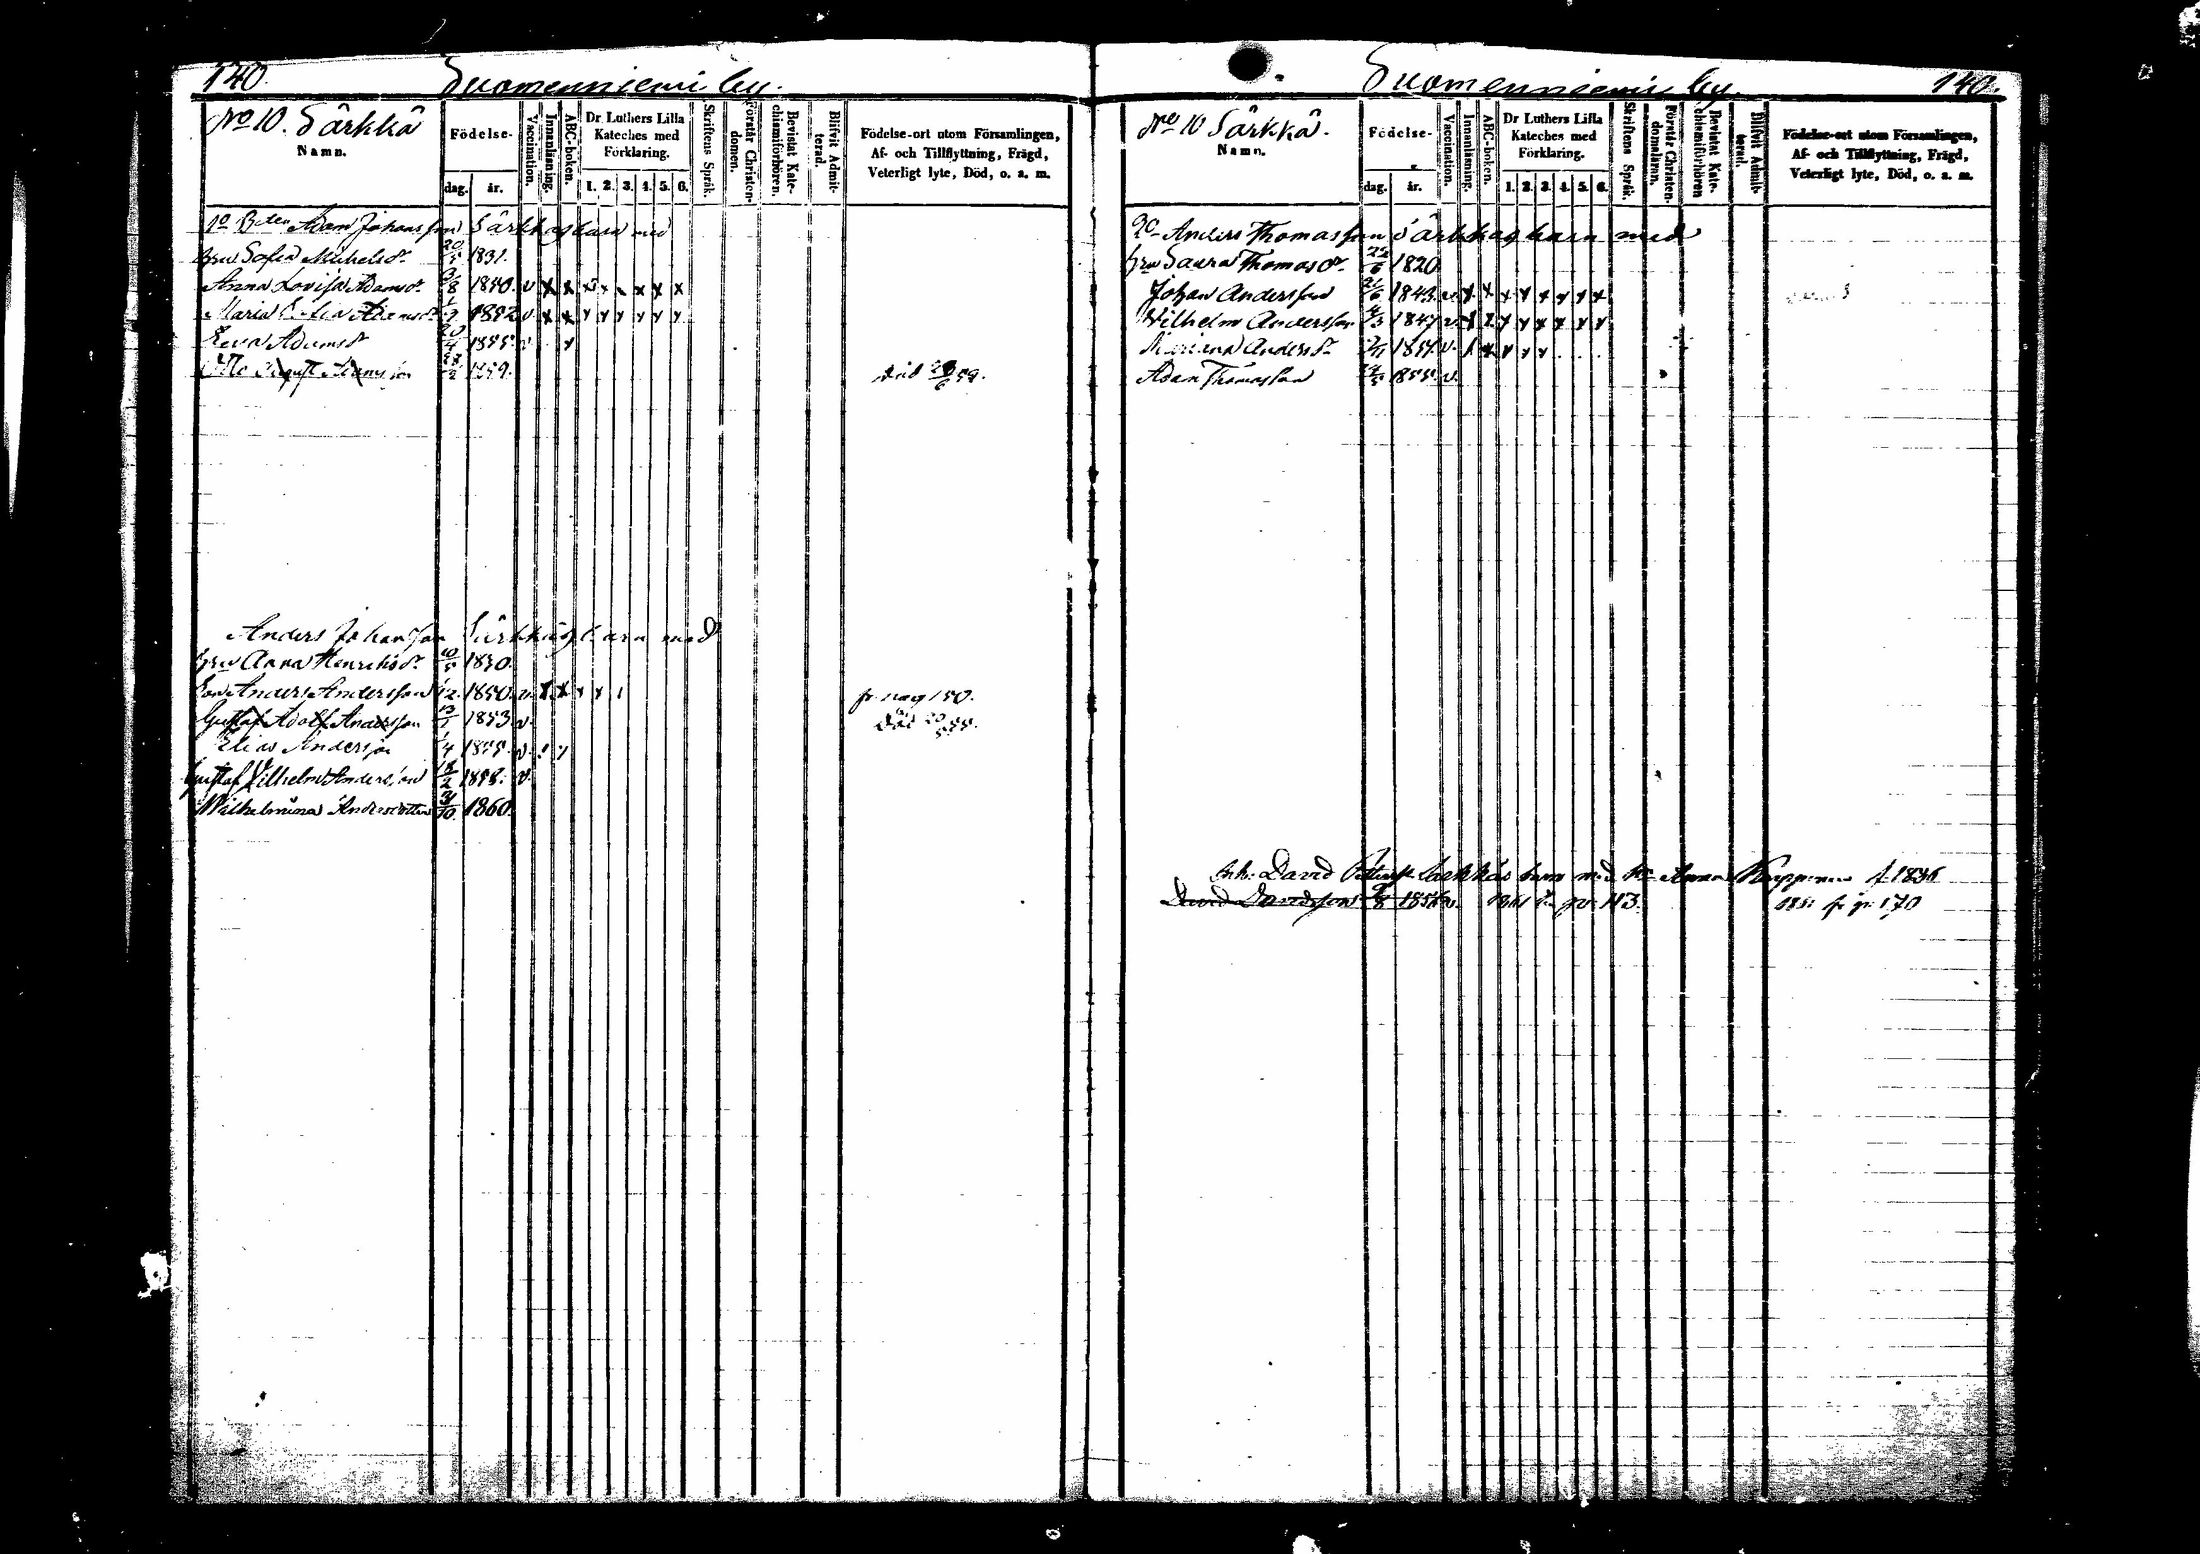 140. Suomenniemi by.
No 10. Särkkä
Namn.
Födelse-
dag. år.
Vaccination.
Innanläsning.
ABC-boken.
Dr Luthers Lilla
Kateches med
Förklaring.
1. 2. 3. 4. 5. 6.
Skriftens Språk.
Förstår Christen-
domen.
Bevistat Kate-
chismiförhören.
Blifvit Admit-
terad.
Födelse-ort utom Församlingen,
Af- och Tillflyttning, Frägd,
Veterligt lyte, Död, o. a. m.
1o Bden Adam Johansson Särkkas barn med
hru Sofia Michelsdr 20/5 1831.
Anna Lovisa Adamsdr 3/8 1850. v x x x x x x x x
Maria Adamsdr 1852. v x x y y y y y y
Eeva Adamsdr 20/4 1855. v x
Otto August Adamsson 1859. död 59.
Anders Johansson Särkkas barn med
hru Anna Henriksdr 10/5 1830.
Son Anders Andersson 1850. v. x x x x fr. pag 150.
Gustaf Adolf Andersson 13/1 1853. v. Död
Elias Andersson 1/4 1855. v.
Gustaf Vilhelm Andersson 18/2 1858. v.
Wilhelmina Andersdotter 31/10 1860.
Suomenniemi by. 140.
No 10 Särkkä.
Namn.
Födelse-
dag. år.
Vaccination.
Innanläsning.
ABC-boken.
Dr Luthers Lilla
Kateches med
Förklaring.
1. 2. 3. 4. 5. 6.
Skriftens Språk.
Förstår Christen-
domsläran.
Bevistat Kate-
chismiförhören
Blifvit Admit-
terad.
Födelse-ort utom Församlingen,
Af- och Tillflyttning, Frägd,
Veterligt lyte, Död, o. a. m.
2o Anders Thomasson Särkkas barn med
hru Saara Thomasdr 1820
Johan Andersson 21/6 1843. v. x x x x x x x x
Wilhelm Andersson 4/3 1847 v. x x y y x x x y
Anders dr 1851. v.
Adam Thomasson 1855. v.
Inh: David Särkkäs barn med hru Anna f. 1836
David Davidsson 1856 v. 1861 t. pag 113. fr. p. 170